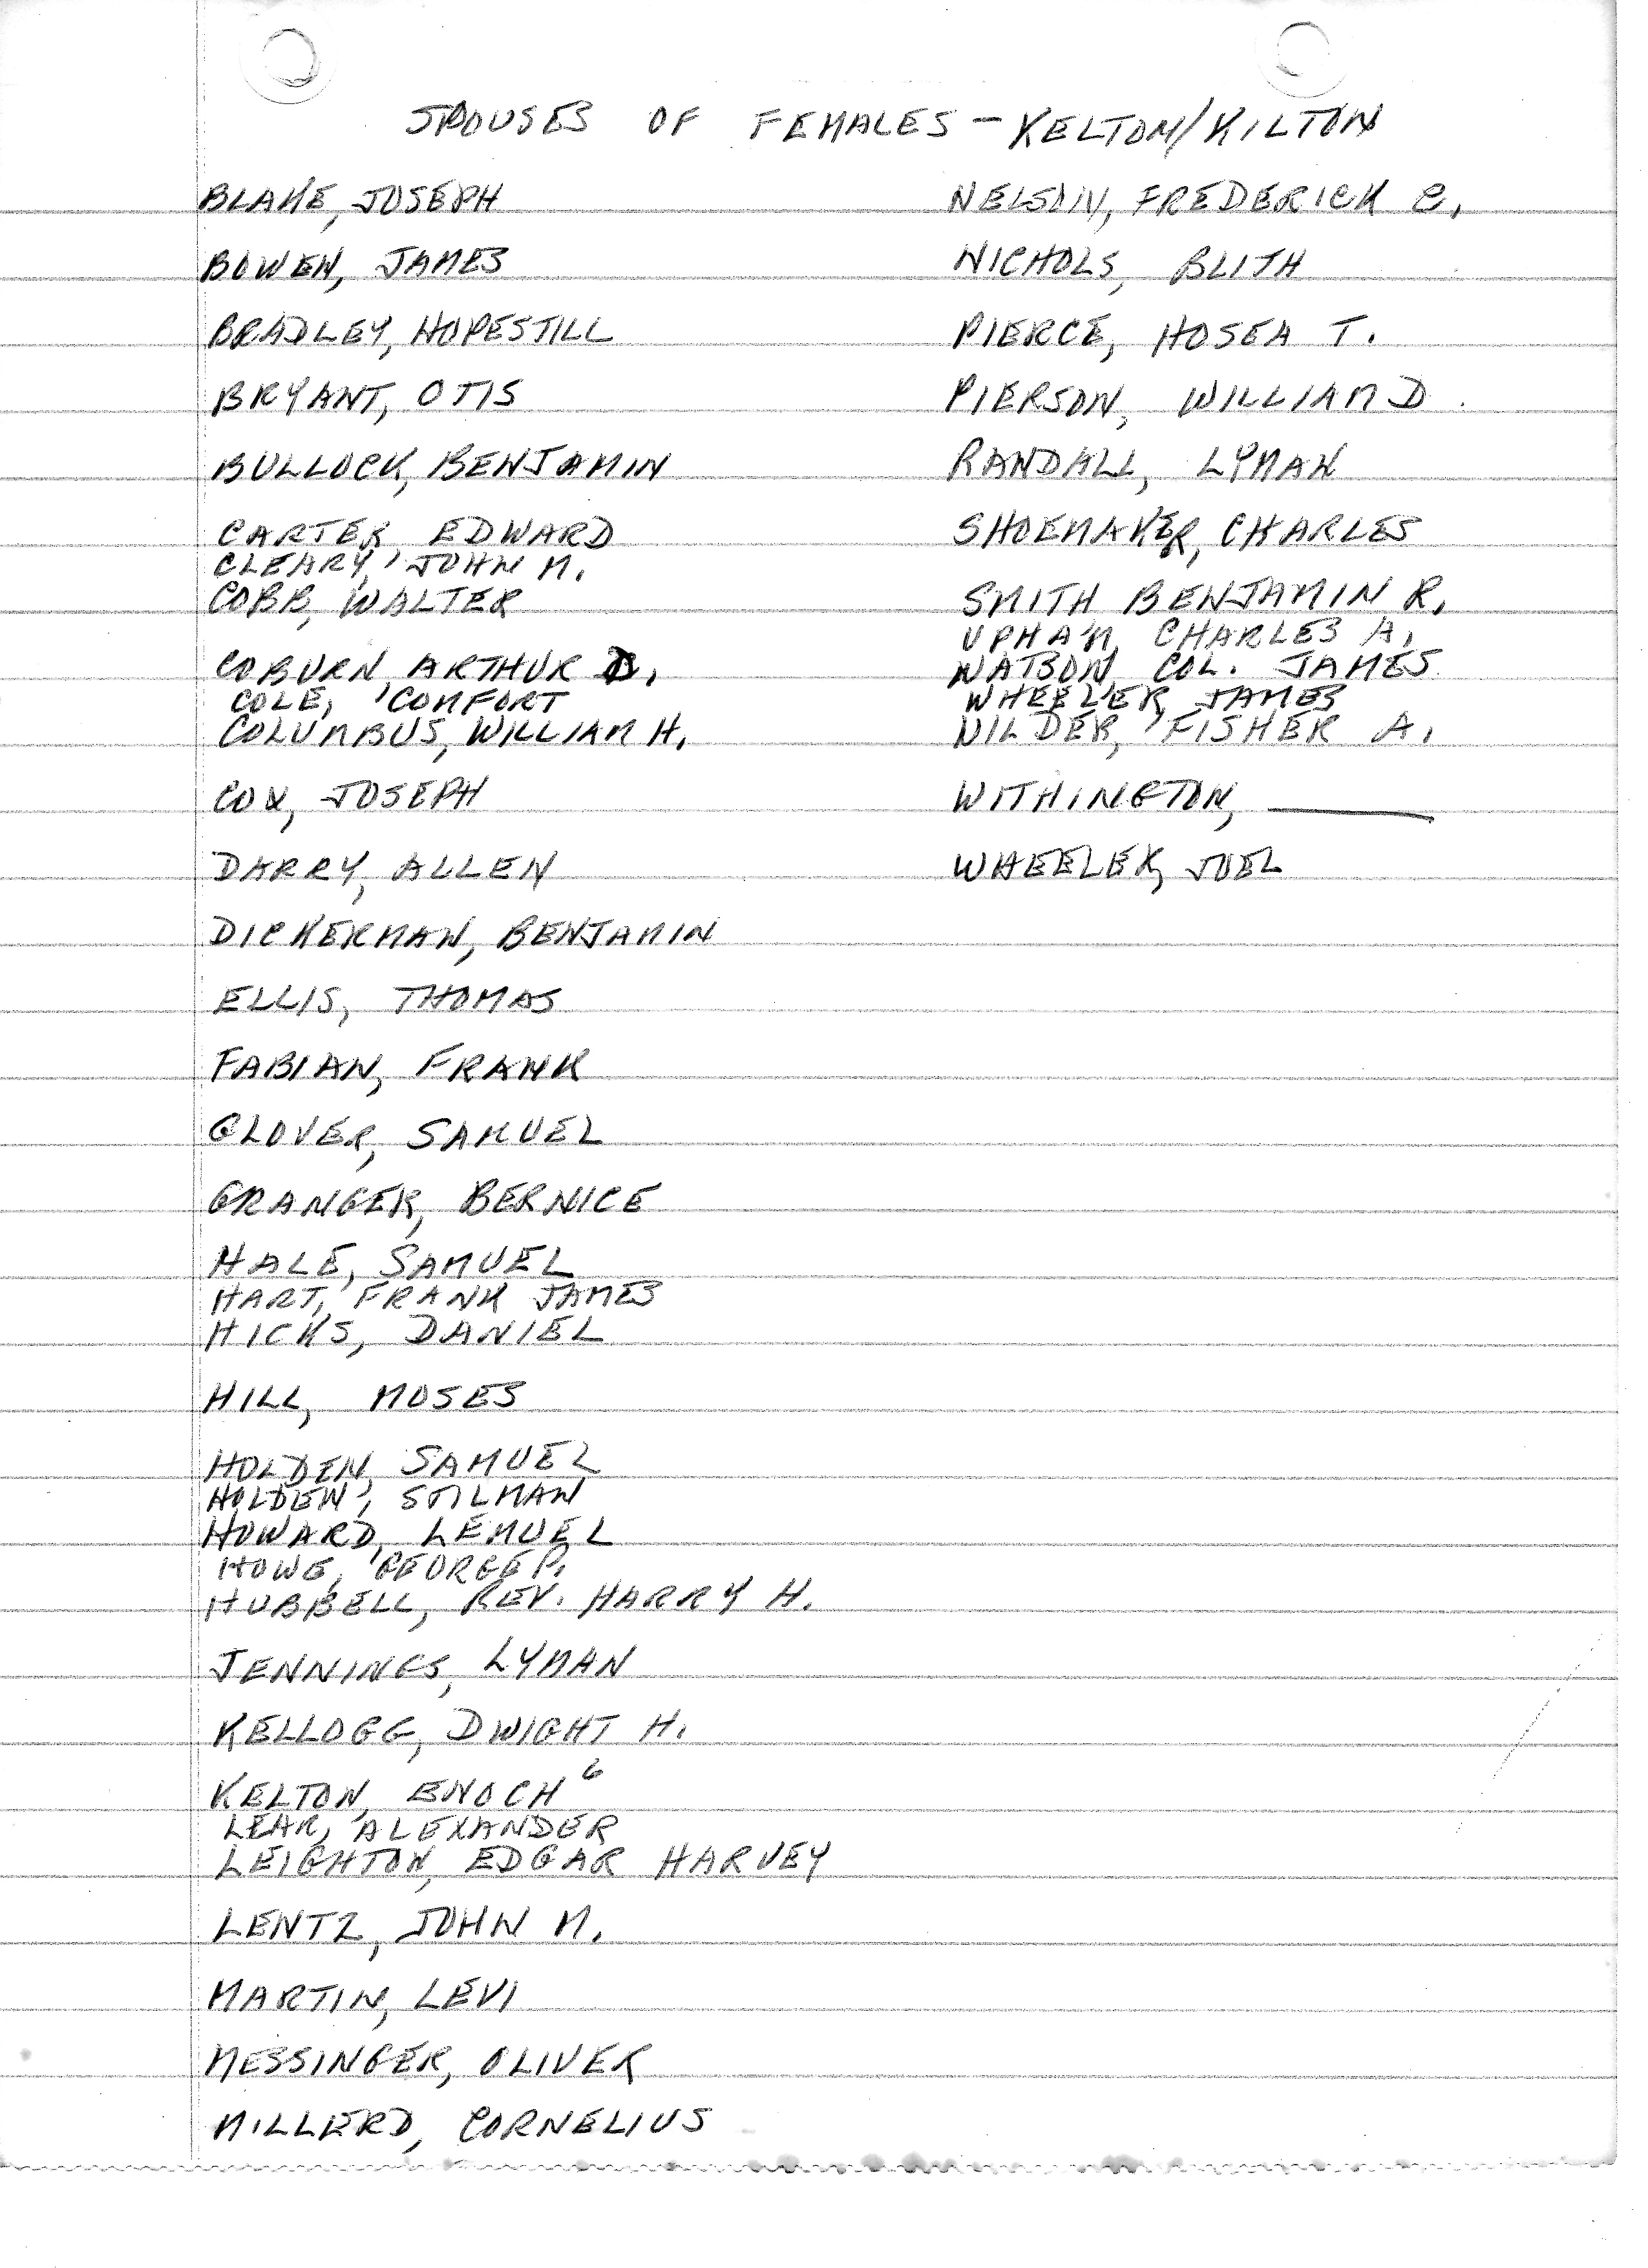 SPOUSES OF FEMALES - KELTON/KILTON
BLAKE, JOSEPH
BOWEN, JAMES
BRADLEY, HOPESTILL
BRYANT, OTIS
BULLOCK, BENJAMIN
CARTER, EDWARD
CLEARY, JOHN M.
COBB, WALTER
COBURN, ARTHUR D.
COLE, COMFORT
COLUMBUS, WILLIAM H.
COX, JOSEPH
DARRY, ALLEN
DICKERMAN, BENJAMIN
ELLIS, THOMAS
FABIAN, FRANK
GLOVER, SAMUEL
GRANGER, BERNICE
HALE, SAMUEL
HART, FRANK JAMES
HICKS, DANIEL
HILL, MOSES
HOLDEN, SAMUEL
HOLDEN, STILMAN
HOWARD, LEMUEL
HOWE, GEORGE P.
HUBBELL, REV. HARRY H.
JENNINGS, LYMAN
KELLOGG, DWIGHT H.
KELTON, ENOCH 6
LEAR, ALEXANDER
LEIGHTON, EDGAR HARVEY
LENTZ, JOHN M.
MARTIN, LEVI
MESSINGER, OLIVER
MILLERD, CORNELIUS
NELSON, FREDERICK C.
NICHOLS, BLITH
PIERCE, HOSEA T.
PIERSON, WILLIAM D.
RANDALL, LYMAN
SHOEMAKER, CHARLES
SMITH BENJAMIN R.
UPHAM, CHARLES A.
WATSON, COL. JAMES
WHEELER, JAMES
WILDER, FISHER A.
WITHINGTON, ______
WHEELER, JOEL